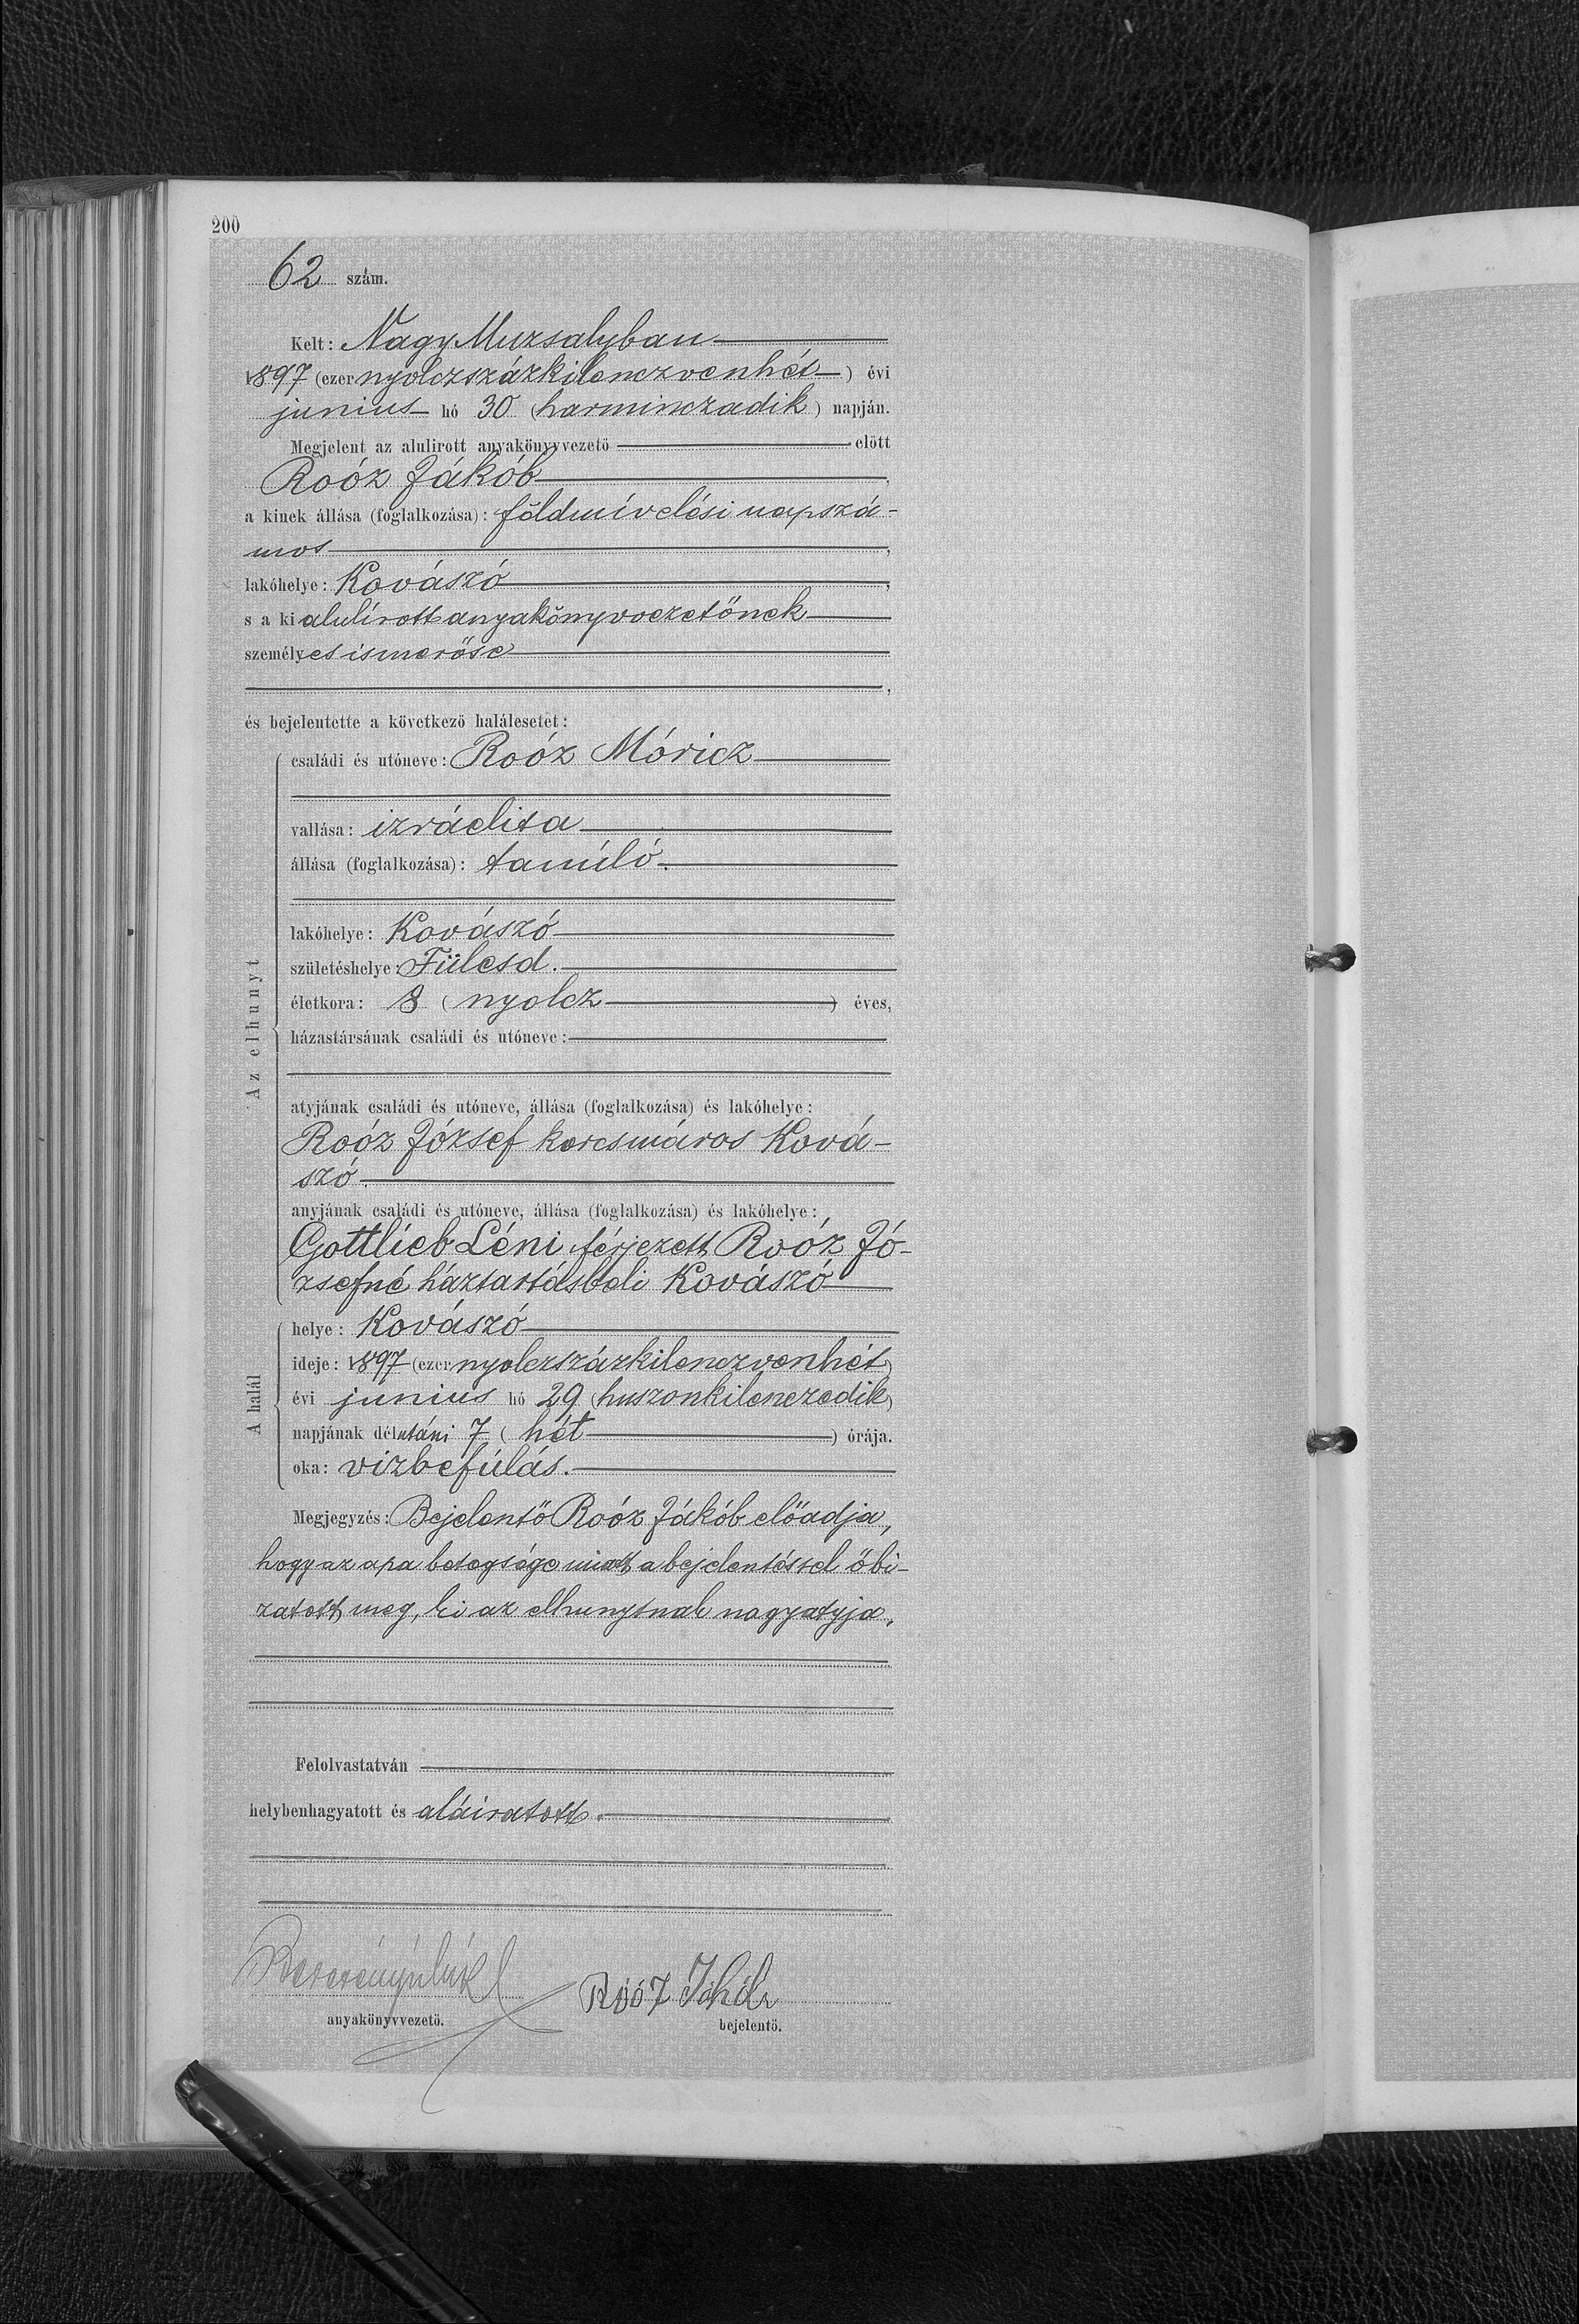 200
62 szám.
Kelt: Nagy Muzsalyban
1897 (ezer nyolczszázkilenczvenhét) évi
junius hó 30 (harminczadik) napján.
Megjelent az alulirott anyakönyvvezető előtt
Roóz Jákób,
a kinek állása (foglalkozása): földmívelési napszá-
mos,
lakóhelye: Kovászó,
s a ki alulírott anyakönyvvezetőnek
személyes ismerőse
,
és bejelentette a következő halálesetet:
Az elhunyt
családi és utóneve: Roóz Móricz
vallása: izráelita
állása (foglalkozása): tanúló.
lakóhelye: Kovászó
születéshelye: Fülesd.
életkora: 8 (nyolcz) éves,
házastársának családi és utóneve:
atyjának családi és utóneve, állása (foglalkozása) és lakóhelye:
Roóz József korcsmáros Ková-
szó.
anyjának családi és utóneve, állása (foglalkozása) és lakóhelye:
Gottlieb Léni férjezett Roóz Jó-
zsefné háztartásbeli Kovászó
A halál
helye: Kovászó
ideje: 1897 (ezer nyolczszázkilenczvenhét)
évi junius hó 29 (huszonkilenczedik)
napjának délutáni 7 (hét) órája.
oka: vizbefúlás.
Megjegyzés: Bejelentő Roóz Jákób előadja,
hogy az apa betegsége miatt a bejelentéssel ő bi-
zatott meg, ki az elhunytnak nagyatyja.
Felolvastatván
helybenhagyatott és aláiratott.
Roóz
anyakönyvvezető.
bejelentő.